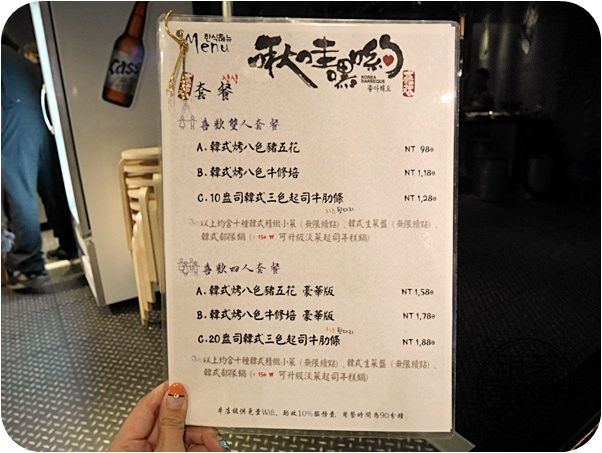 한식메뉴
Menu
啾哇黑喲
KOREA
BARBEQUE
좋아해요
套餐 정식
Cass
喜歡雙人套餐
A.韓式烤八色豬五花 NT 980
B.韓式烤八色牛修培 NT 1,180
C.10盎司韓式三色起司牛肋條 NT 1,280
以上均含十種韓式精緻小菜(無限續點)、韓式生菜盤(無限續點)、
韓式部隊鍋(+150 可升級淡菜起司年糕鍋)
喜歡四人套餐
A.韓式烤八色豬五花 豪華版 NT 1,580
B.韓式烤八色牛修培 豪華版 NT 1,780
C.20盎司韓式三色起司牛肋條 NT 1,880
以上均含十種韓式精緻小菜(無限續點)、韓式生菜盤(無限續點)、
韓式部隊鍋(+150 可升級淡菜起司年糕鍋)
本店提供免費Wifi, 酌收10%服務費, 用餐時間為90分鐘.